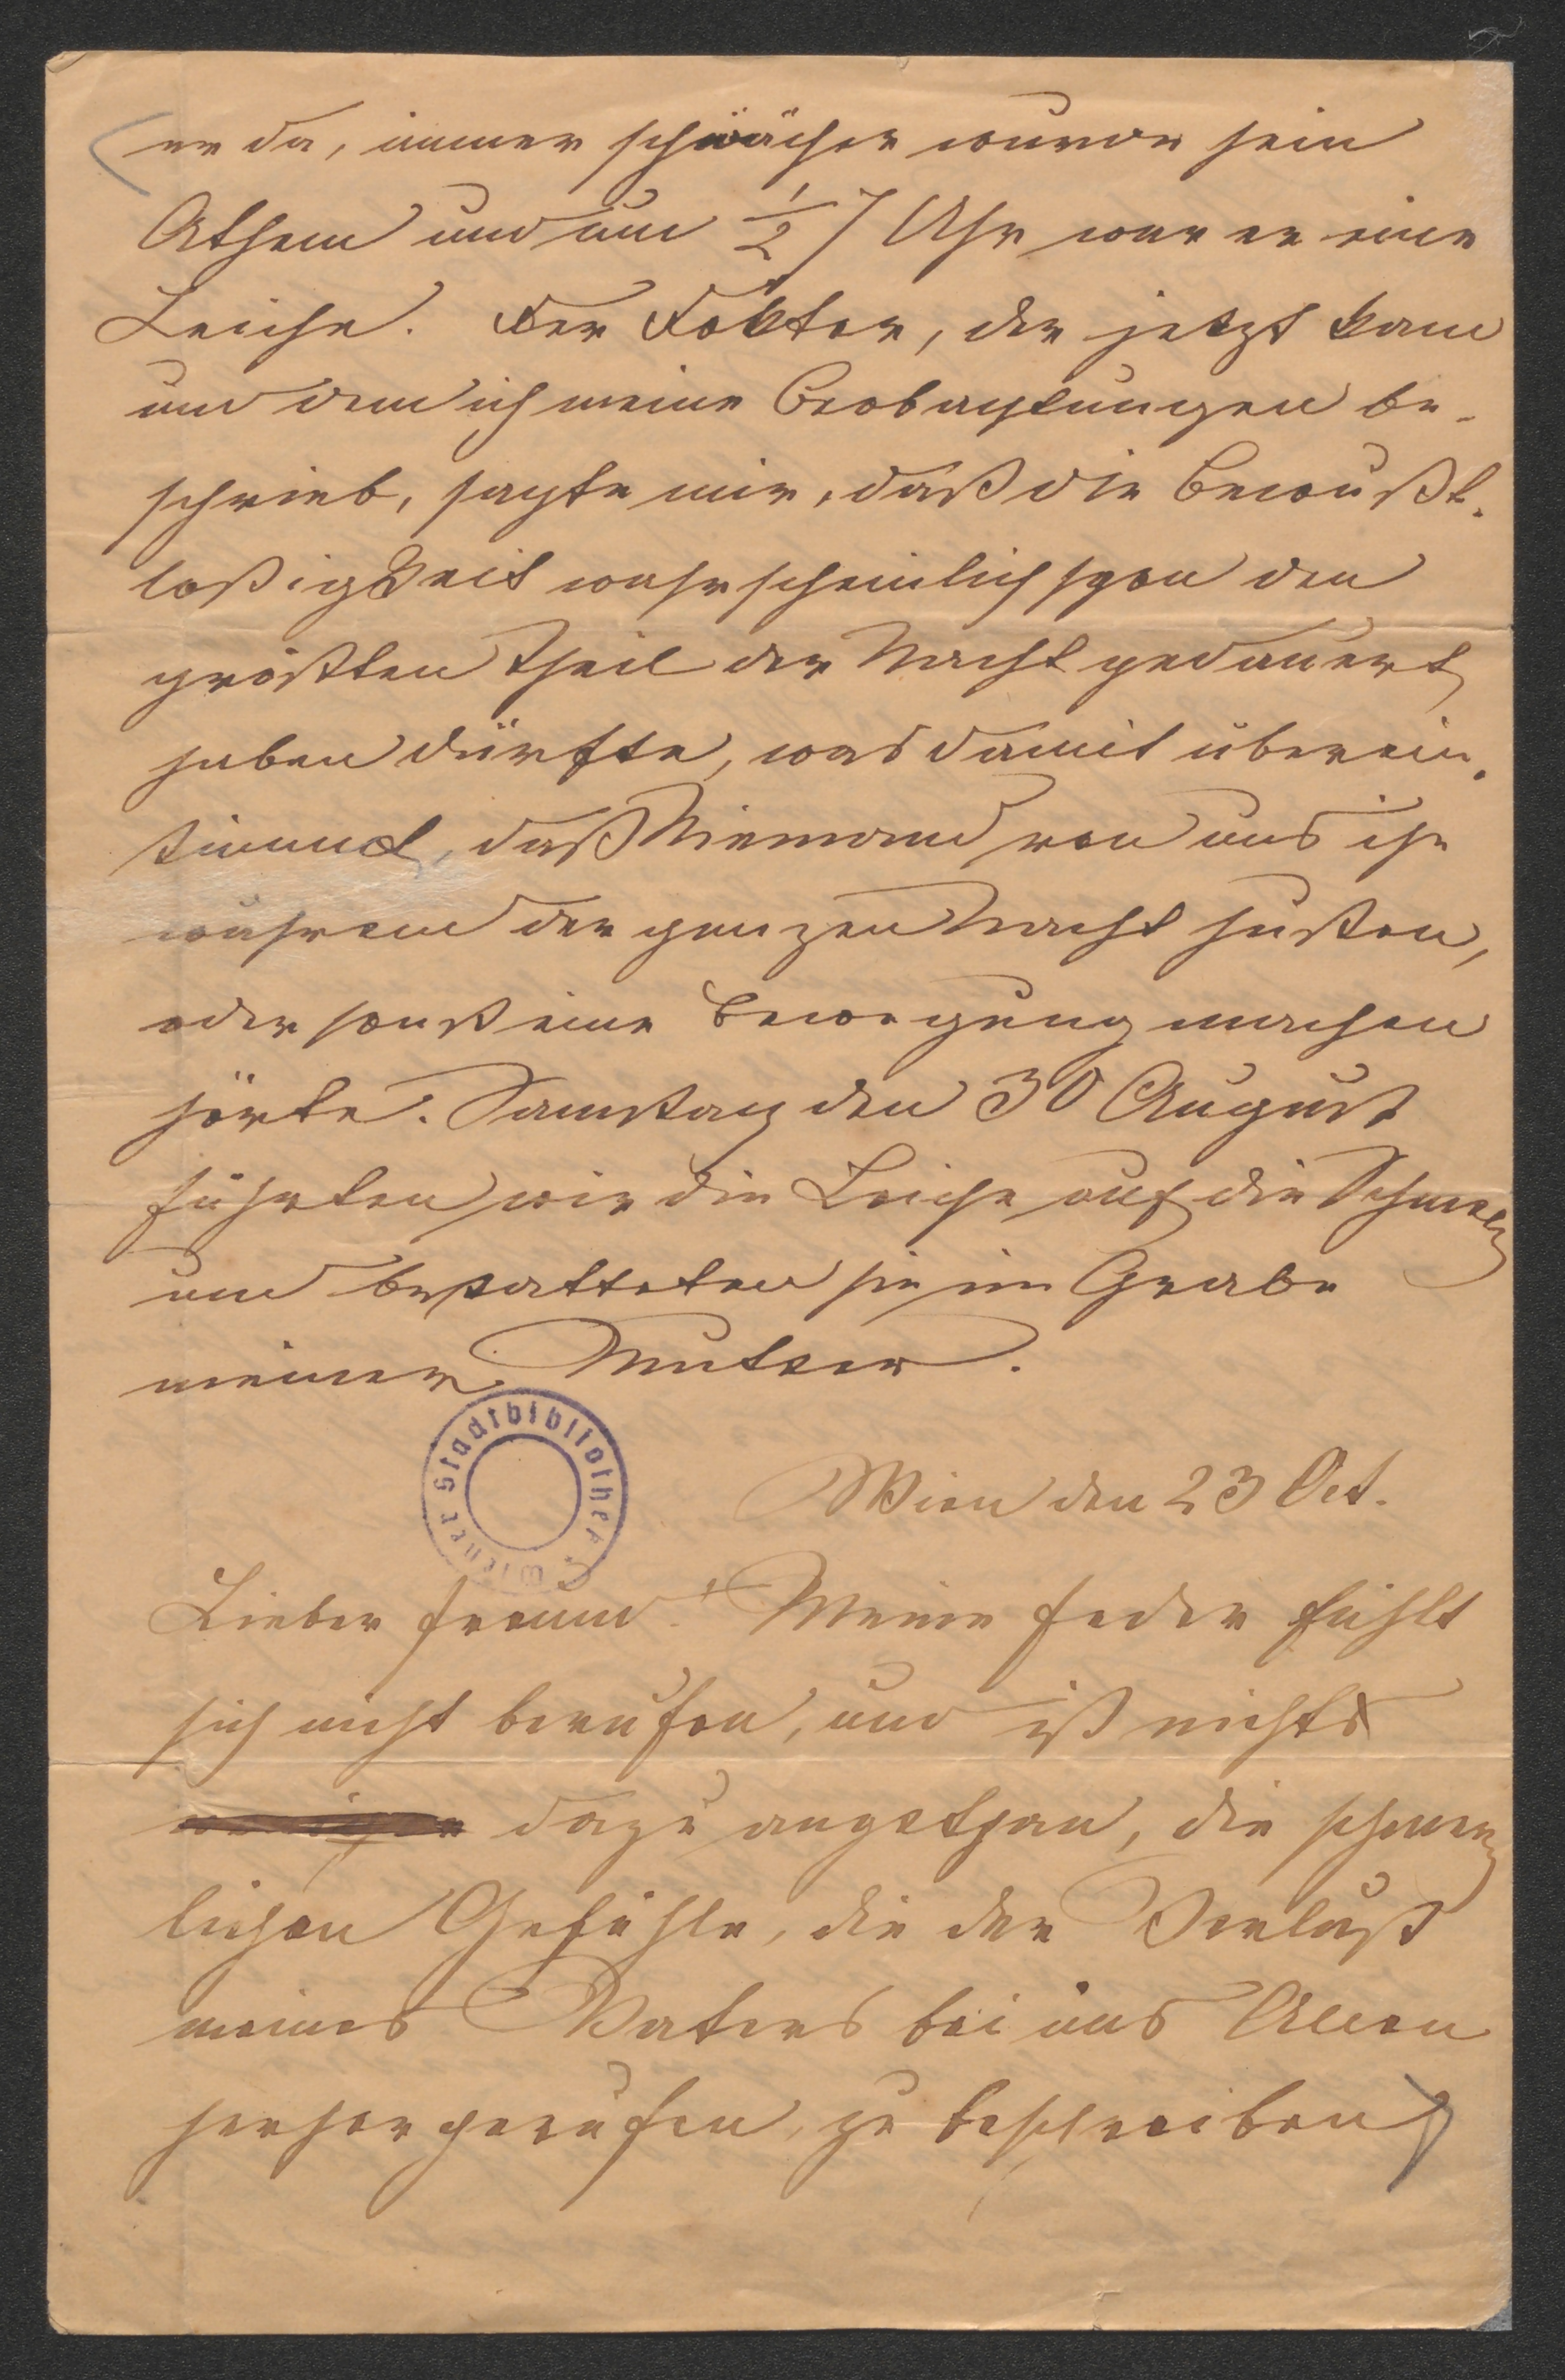 er da, immer schwächer wurde sein
Athem und um ½7 Uhr war er eine
Leiche. Der Doktor, der jetzt kam
und dem ich meine Beobachtungen be-
schrieb, sagte mir, daß die Bewußt-
loßigkeit wahrscheinlich schon den
größten Theil der Nacht gedauert
haben dürfte, was damit überein-
stimmt, daß Niemand von uns ihn
während der ganzen Nacht husten,
oder sonst eine Bewegung machen
hörte. Samstag den 30 August
führten wir die Leiche auf die Schmelz
und bestatteten sie im Grabe
meiner Mutter.
Wiener Stadtbibliothek
Wien den 23 Oct.
Lieber Freund! Meine Feder fühlt
sich nicht berufen, und ist nichts
dazu angethan, die schmerz
lichen Gefühle, die der Verlust
meines Vaters bei uns Allen
hervorgerufen, zu beschreiben